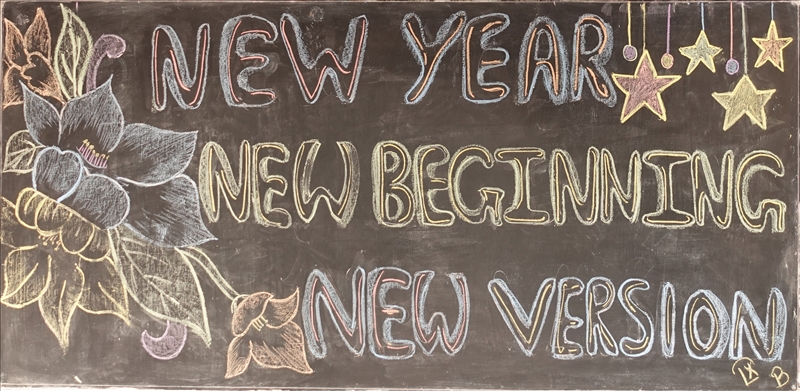 NEW YEAR
NEW BEGINNING
NEW VERSION
IX B